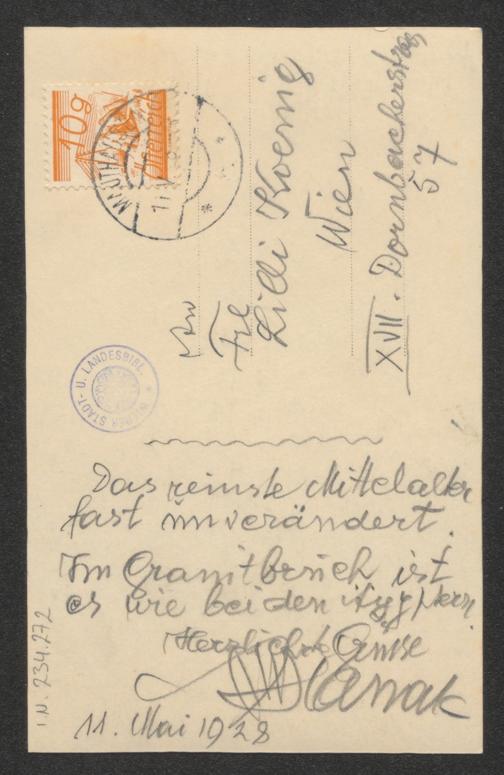 10g
Österreich
MAUTHAUSEN
An
Frl
Lilli Koenig
Wien
XVII. Dornbacherstrasse
57
WIENER STADT- U. LANDESBIBL.
Das reinste Mittelalter
fast unverändert.
Im Granitbruch ist
es wie bei den Aegyptern.
Herzlichste Grüsse
Hanak
11. Mai 1928
I.N. 234.272